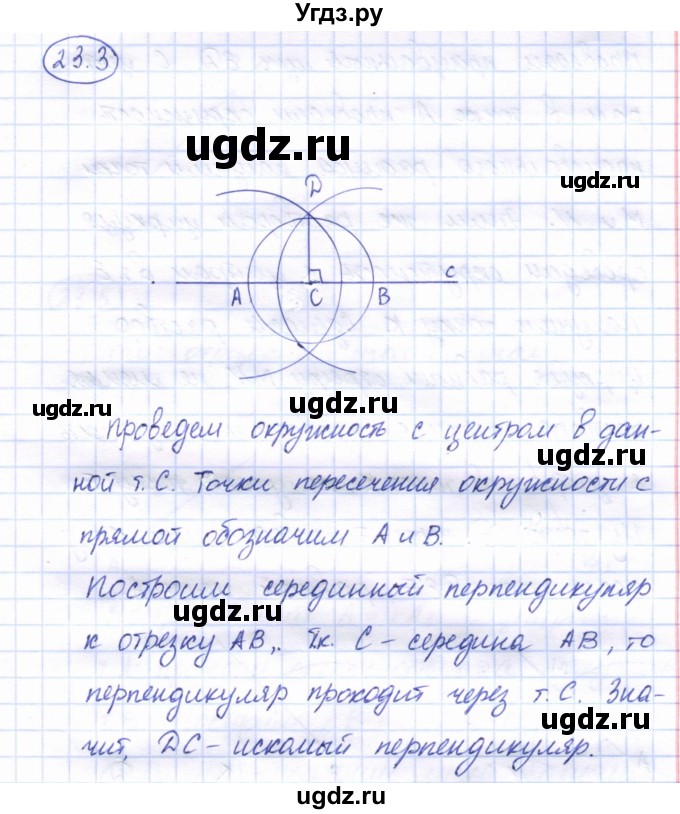 Угдз.ру
23.3
ugdz.ru
ugdz.ru
D
A
C
B
c
ugdz.ru
ugdz.ru
Проведем окружность с центром в дан-
ugdz.ru
ной т. С. Точки пересечения окружности с
прямой обозначим А и В.
ugdz.ru
Построим серединный перпендикуляр
к отрезку АВ,. Тк. С - середина АВ, то
перпендикуляр проходит через т. С. Зна-
ugdz.ru
чит, DC - искомый перпендикуляр.
ugdz.ru
ugdz.ru